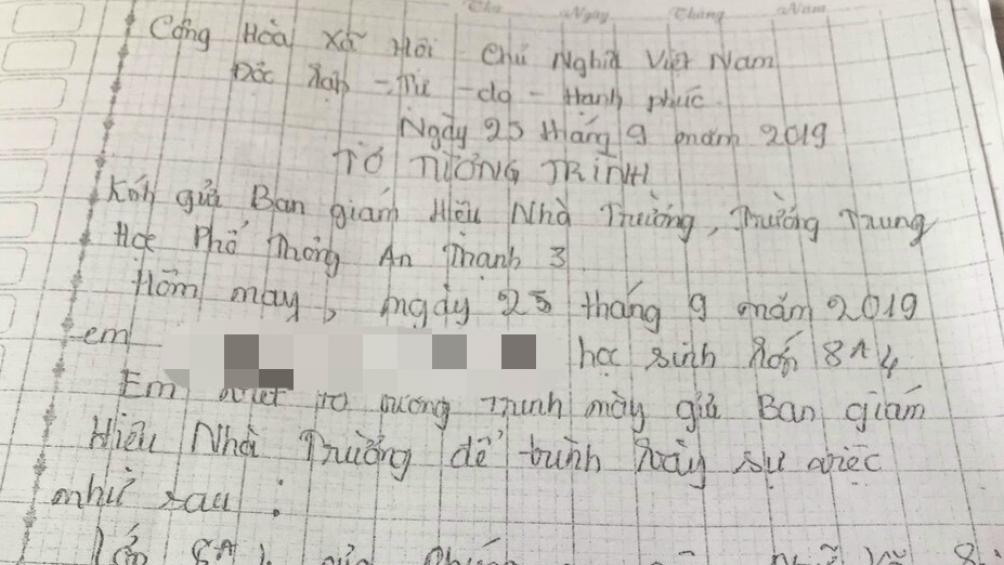 Thứ Ngày Tháng Năm
Cộng Hòa Xã Hội Chủ Nghĩa Việt Nam
Độc lập - Tự - do - Hạnh phúc
Ngày 25 tháng 9 năm 2019
TỜ TƯỜNG TRÌNH
Kính gửi Ban giám Hiệu Nhà Trường, Trường Trung
Học Phổ Thông An Thạnh 3
Hôm nay, ngày 25 tháng 9 năm 2019
em học sinh lớp 8A4
Em viết tờ tường trình này gửi Ban giám
Hiệu Nhà Trường để trình bày sự việc
như sau :